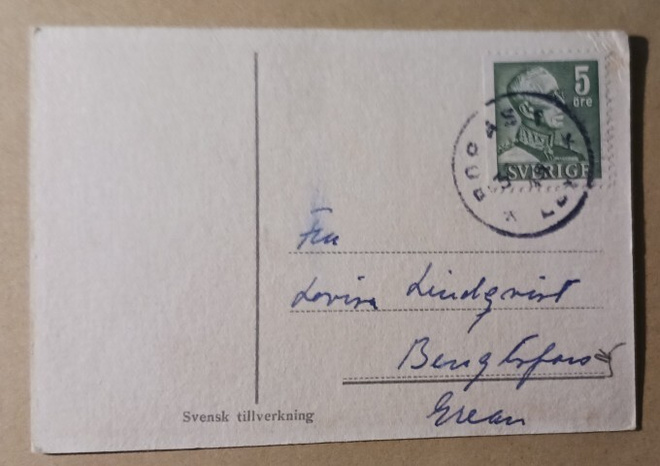 5
öre
SVERIGE
BORÅS
Fru
Lovisa Lindqvist
Bengtsfors
Svensk tillverkning